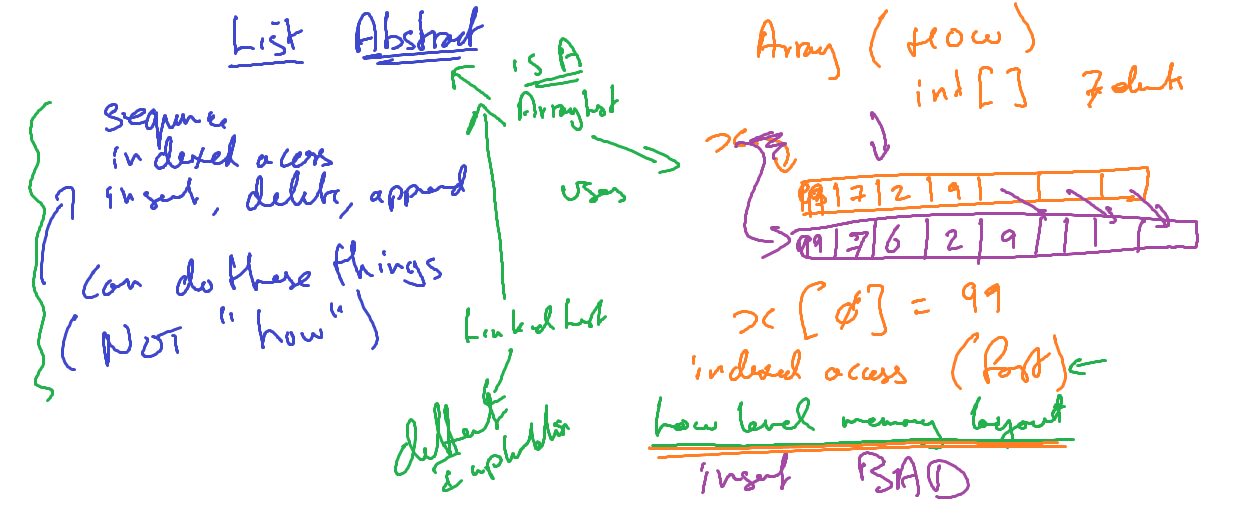 List Abstract
sequence
indexed access
insert, delete, append
can do these things
(NOT "how")
is A
ArrayList
uses
LinkedList
different
Array (HOW)
int[] 7
x
99 7 2 9
99 7 6 2 9
x[0] = 99
indexed access (fast)
low level memory layout
insert BAD